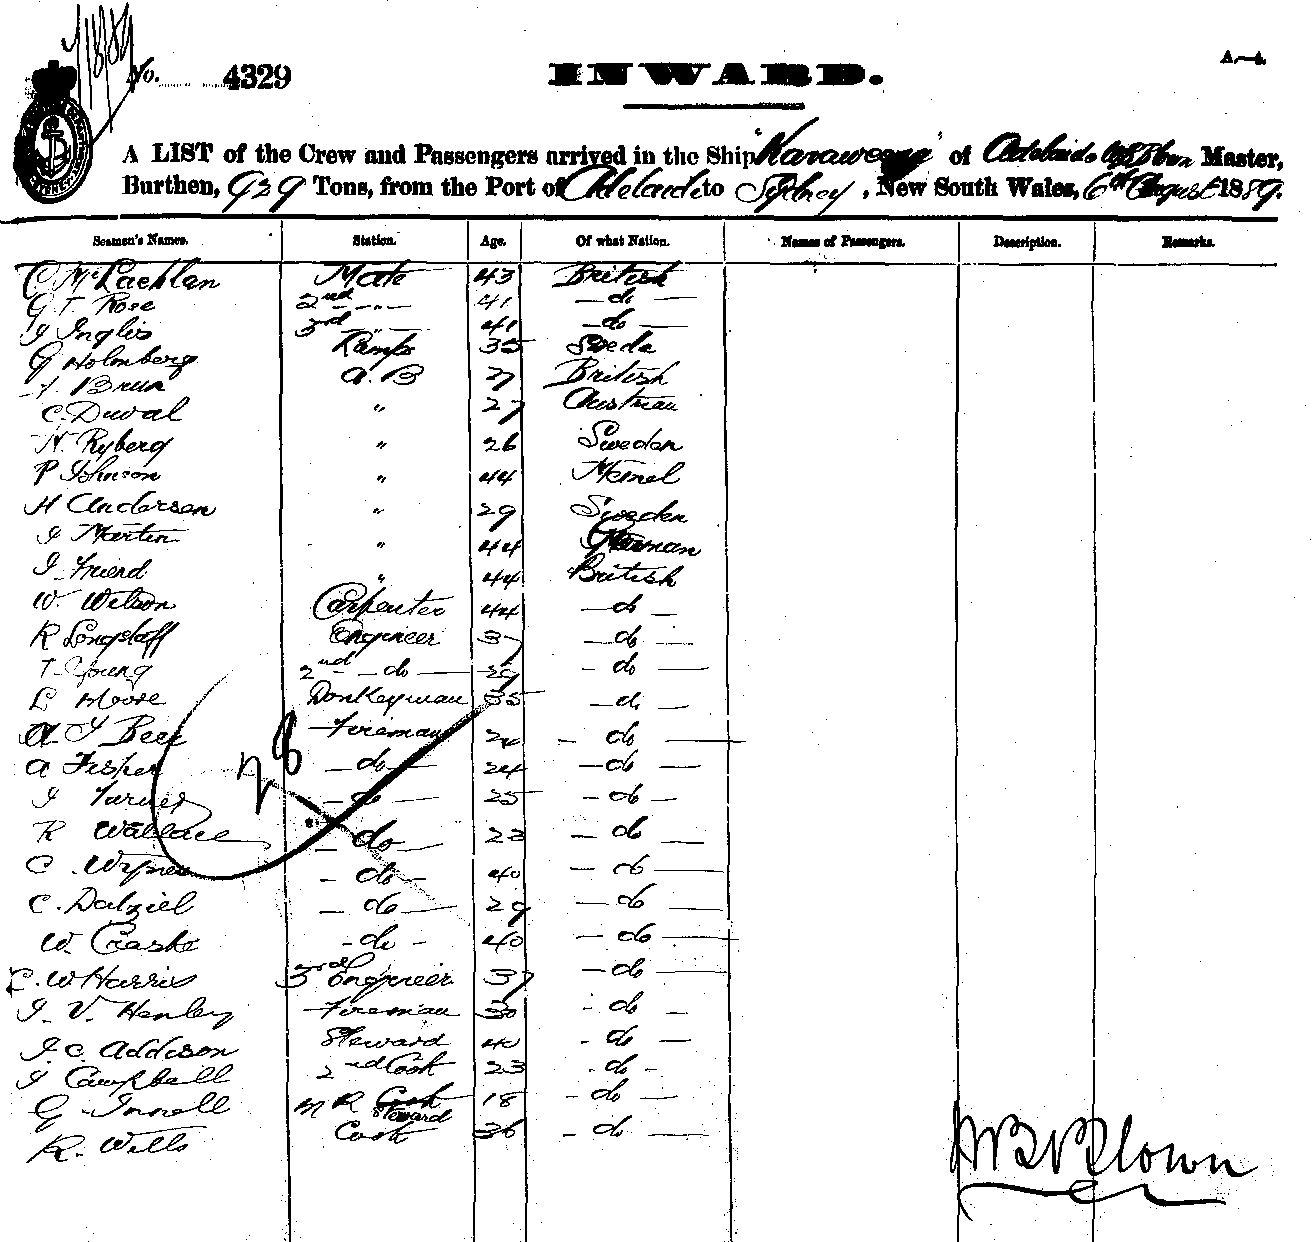 7/8/89
No. 4329
INWARD.
A.—4.
A LIST of the Crew and Passengers arrived in the Ship "Karaweera" of Adelaide Master,
Burthen, 929 Tons, from the Port of Adelaide to Sydney, New South Wales, 6th August 1889.
Seamen's Names. Station. Age. Of what Nation. Names of Passengers. Description. Remarks.
C McLachlan Mate 43 British
G T Rose 2nd " 41 — do —
J Inglis 3rd " 41 — do —
G Holmberg Lamps 35 Swede
Brun A.B 27 British
C. Duval " 27 Austrian
N. Ryberg " 26 Sweden
P Johnson " 44 Memel
H Andersen " 29 Sweden
J Martin " 44 German
J Friend " 44 British
W. Wilson Carpenter 44 — do —
R Longstaff Engineer 37 — do —
T Young 2nd — do — 29 - do —
L Moore Donkeyman 35 — do —
A J Beer Fireman 24 — do —
A Fisher — do — 24 — do —
J Turner — do — 25 — do —
28
R Wallace — do — 23 — do —
C. Wagner — do — 40 — do —
C. Dalziel — do — 29 — do —
W. Craske - do - 40 — do —
C. W Harris 3rd Engineer 37 — do —
J. V. Henley Fireman 30 - do —
J. C. Addison Steward 40 - do —
J Campbell 2nd Cook 23 - do -
G Innell M R Cook Steward 18 - do —
R. Wills Cook 36 — do —